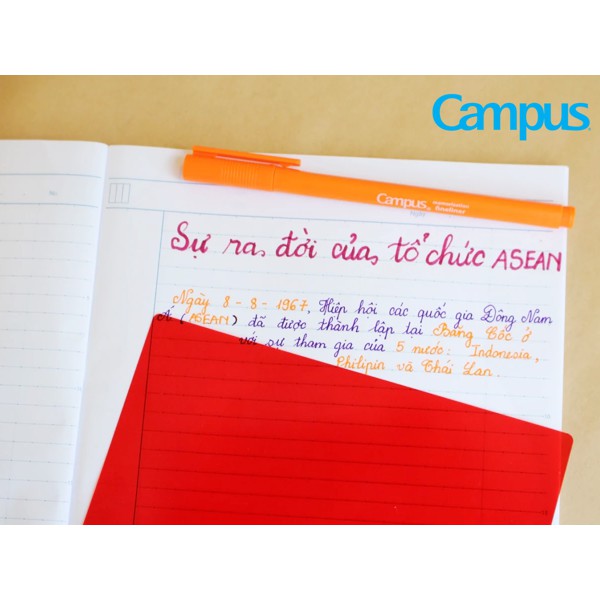 Campus
Campus
Sự ra đời của tổ chức ASEAN
Ngày 8 - 8 - 1967, Hiệp hội các quốc gia Đông Nam
Á (ASEAN) đã được thành lập tại Băng Cốc ở
với sự tham gia của 5 nước: Indonesia,
Philipin và Thái Lan.